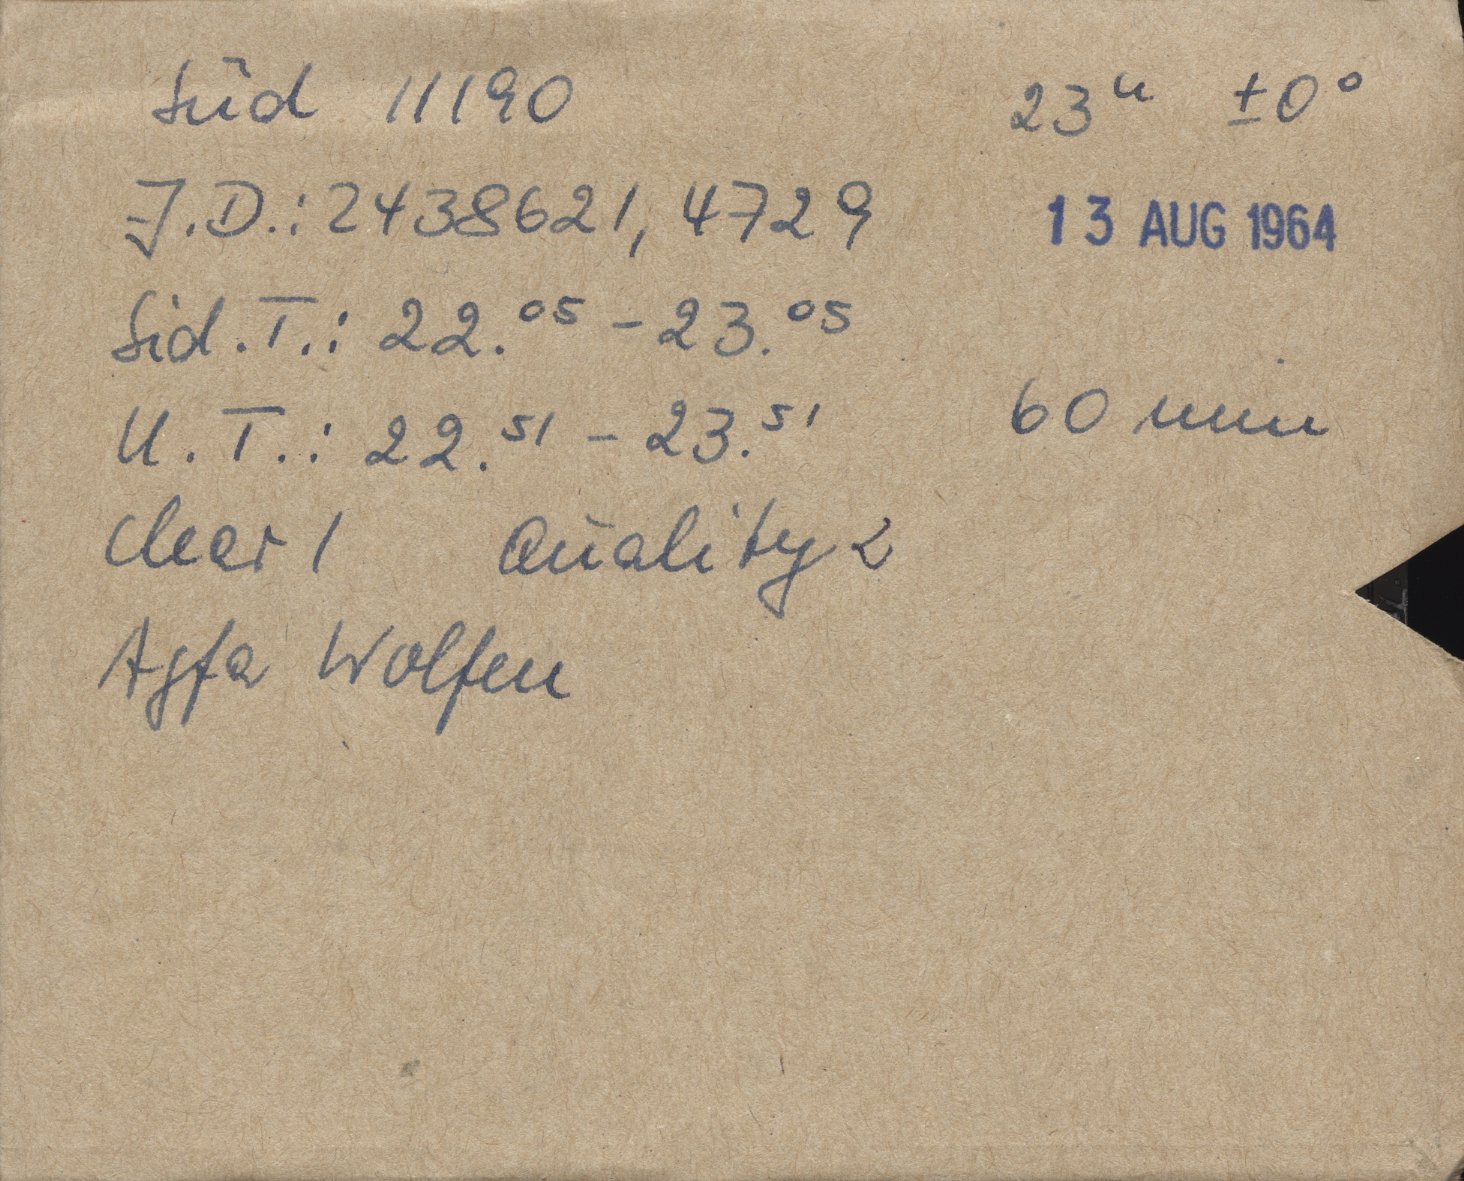 Süd 11190 23ᵘ ±0°
J.D.: 2438621,4729 13 AUG 1964
Sid.T.: 22.⁰⁵ – 23.⁰⁵
U.T.: 22.⁵¹ – 23.⁵¹ 60 min
Clear 1 Quality 2
Agfa Wolfen